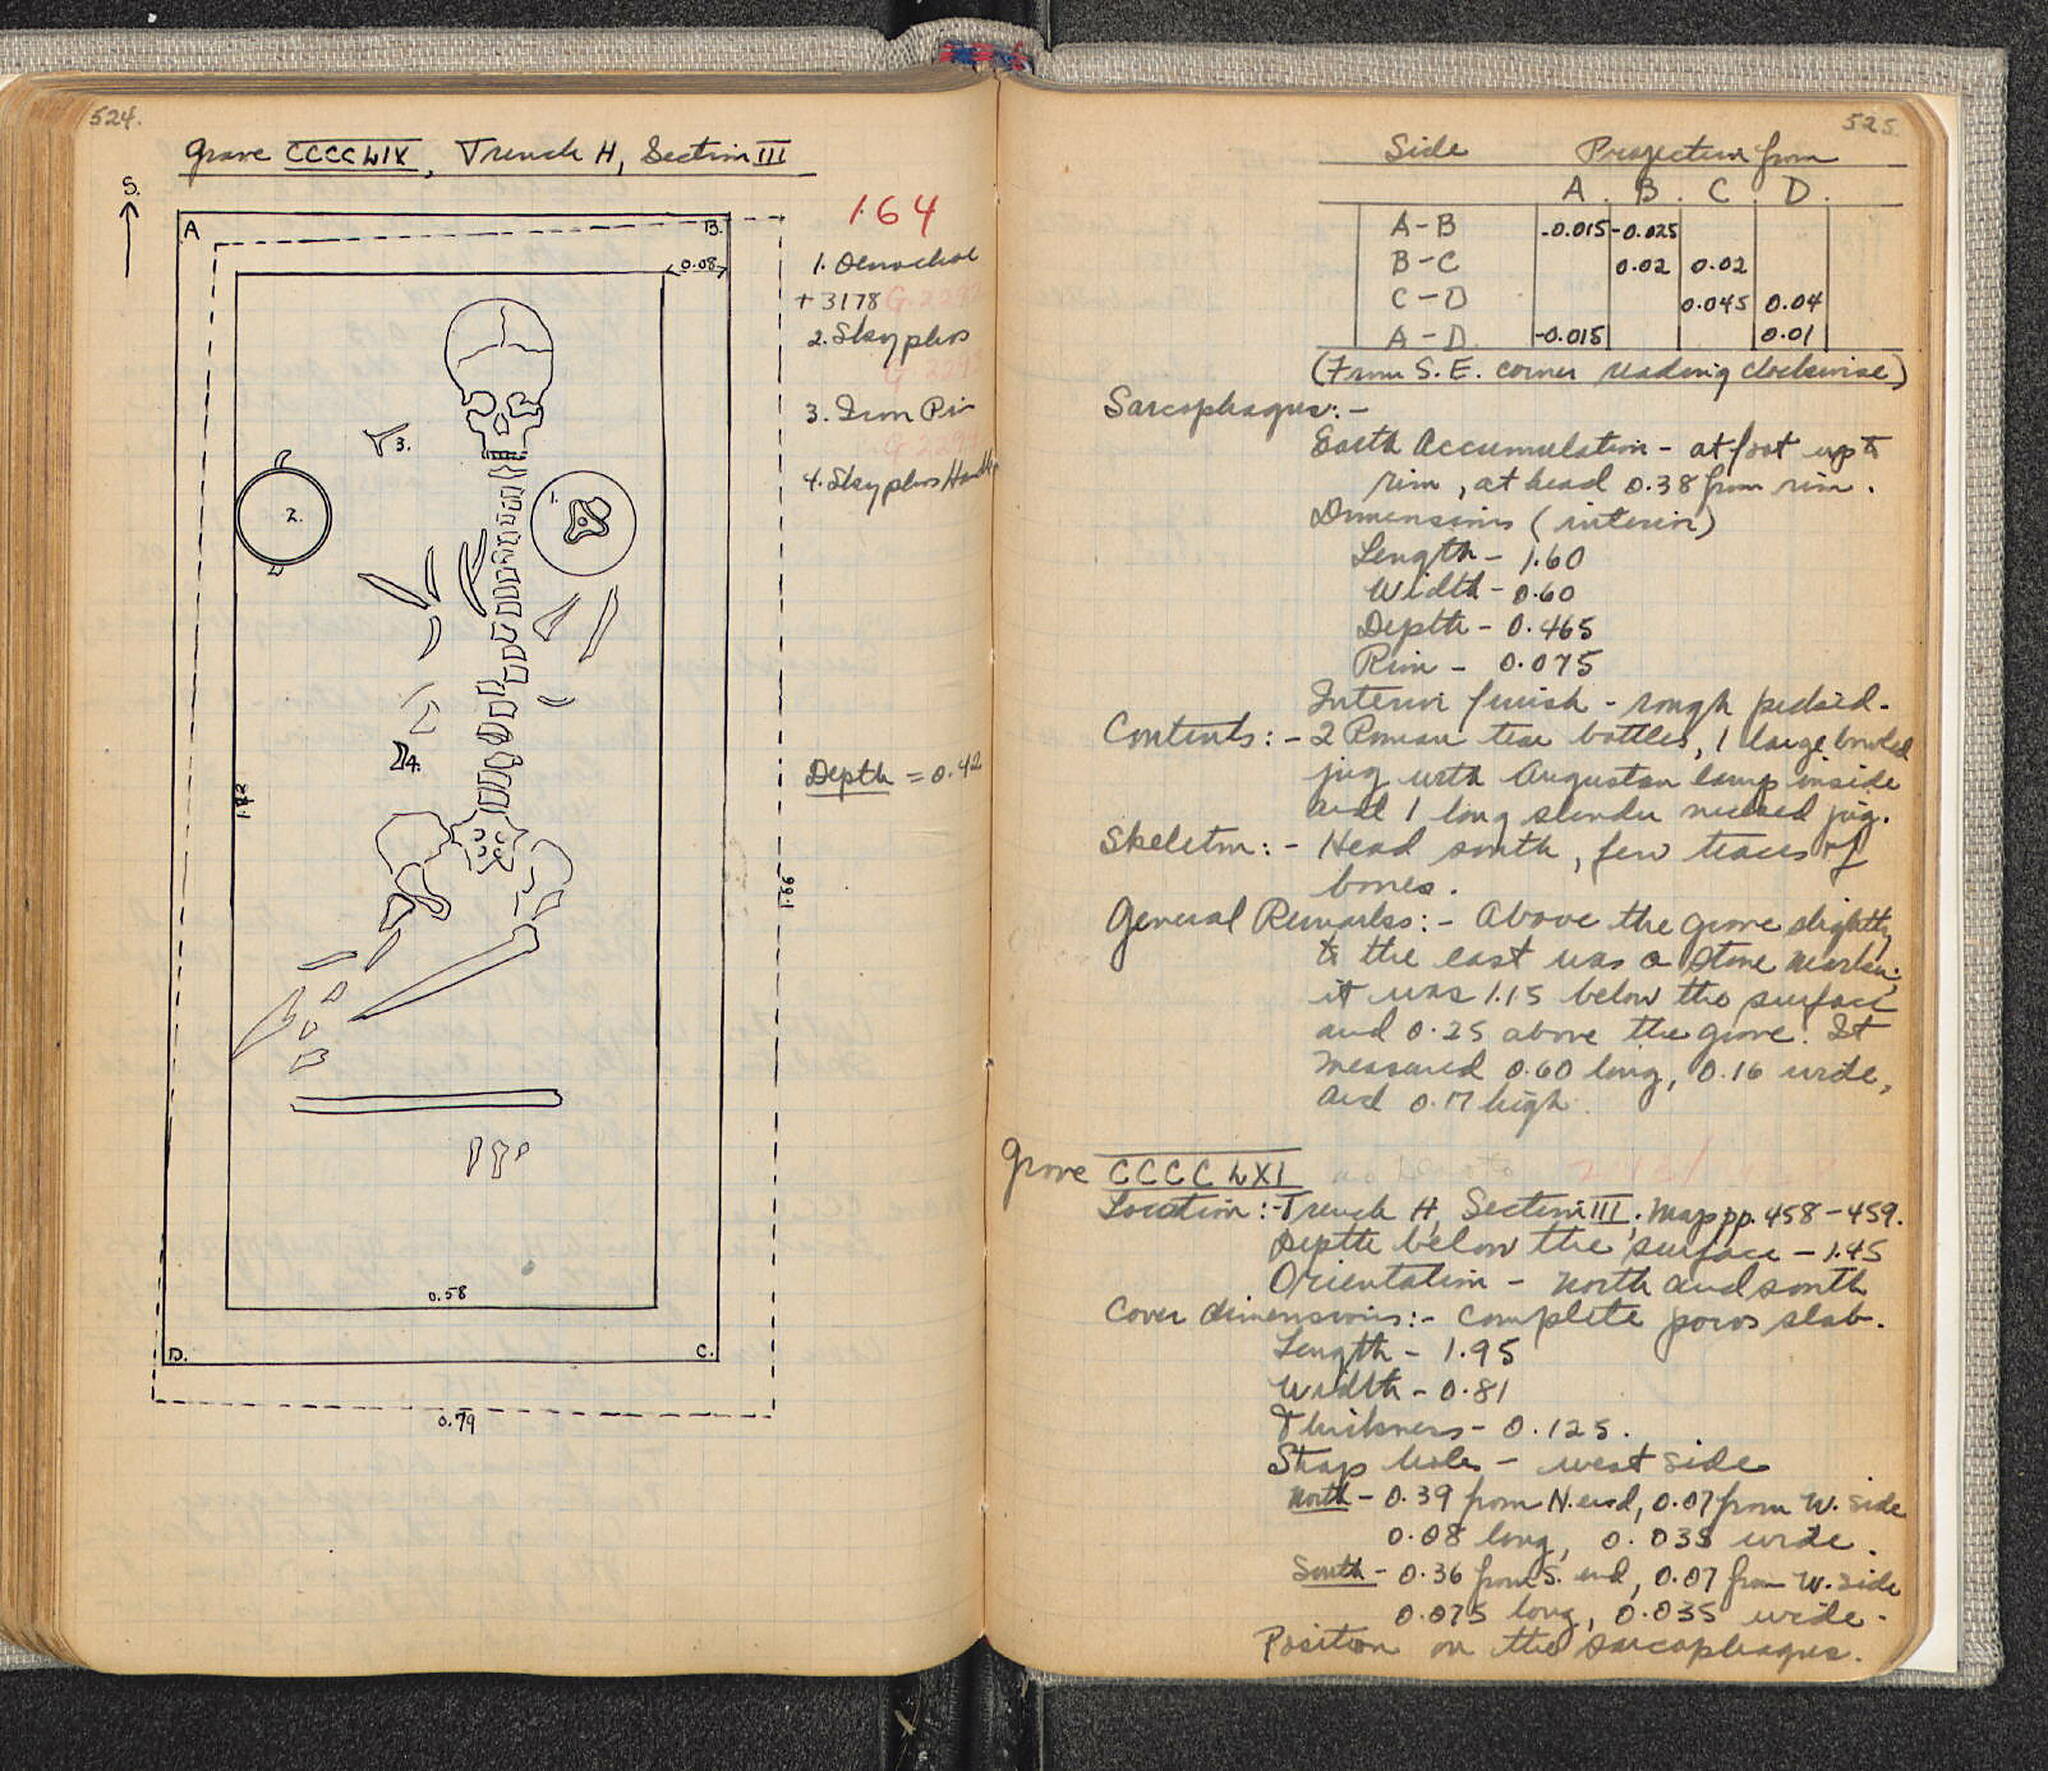 524.
Grave CCCCLIX, Trench H, Section III
S.
A
B.
0.08
164
1. Oenochoe
+3178 G.2292
2. Skyphos
3. Iron Pin
4. Skyphos Handle
3.
1.
2.
4.
Depth = 0.42
1.66
0.58
D.
C.
0.79
525.
Side Projection from
A. B. C. D.
A-B -0.015 -0.025
B-C 0.02 0.02
C-D 0.045 0.04
A-D -0.015 0.01
(From S.E. corner reading clockwise)
Sarcophagus:-
Earth Accumulation - at foot up to
rim, at head 0.38 from rim.
Dimensions (interior)
Length - 1.60
Width - 0.60
Depth - 0.465
Rim - 0.075
Interior finish - rough picked.
Contents: - 2 Roman tear bottles, 1 large bowled
jug with Augustan lamp inside
and 1 long slender necked jug.
Skeleton: - Head south, few traces of
bones.
General Remarks: - Above the grave slightly
to the east was a stone marker;
it was 1.15 below the surface
and 0.25 above the grave. It
measured 0.60 long, 0.16 wide,
and 0.17 high.
Grave CCCCLXI no photo
Location:- Trench H, Section III; Map pp. 458-459.
Depth below the surface - 1.45
Orientation - North and south
Cover dimensions:- Complete poros slab.
Length - 1.95
Width - 0.81
Thickness - 0.125.
Strap holes - west side
North - 0.39 from N. end, 0.07 from W. side
0.08 long, 0.035 wide.
South - 0.36 from S. end, 0.07 from W. side
0.075 long, 0.035 wide.
Position on the sarcophagus.